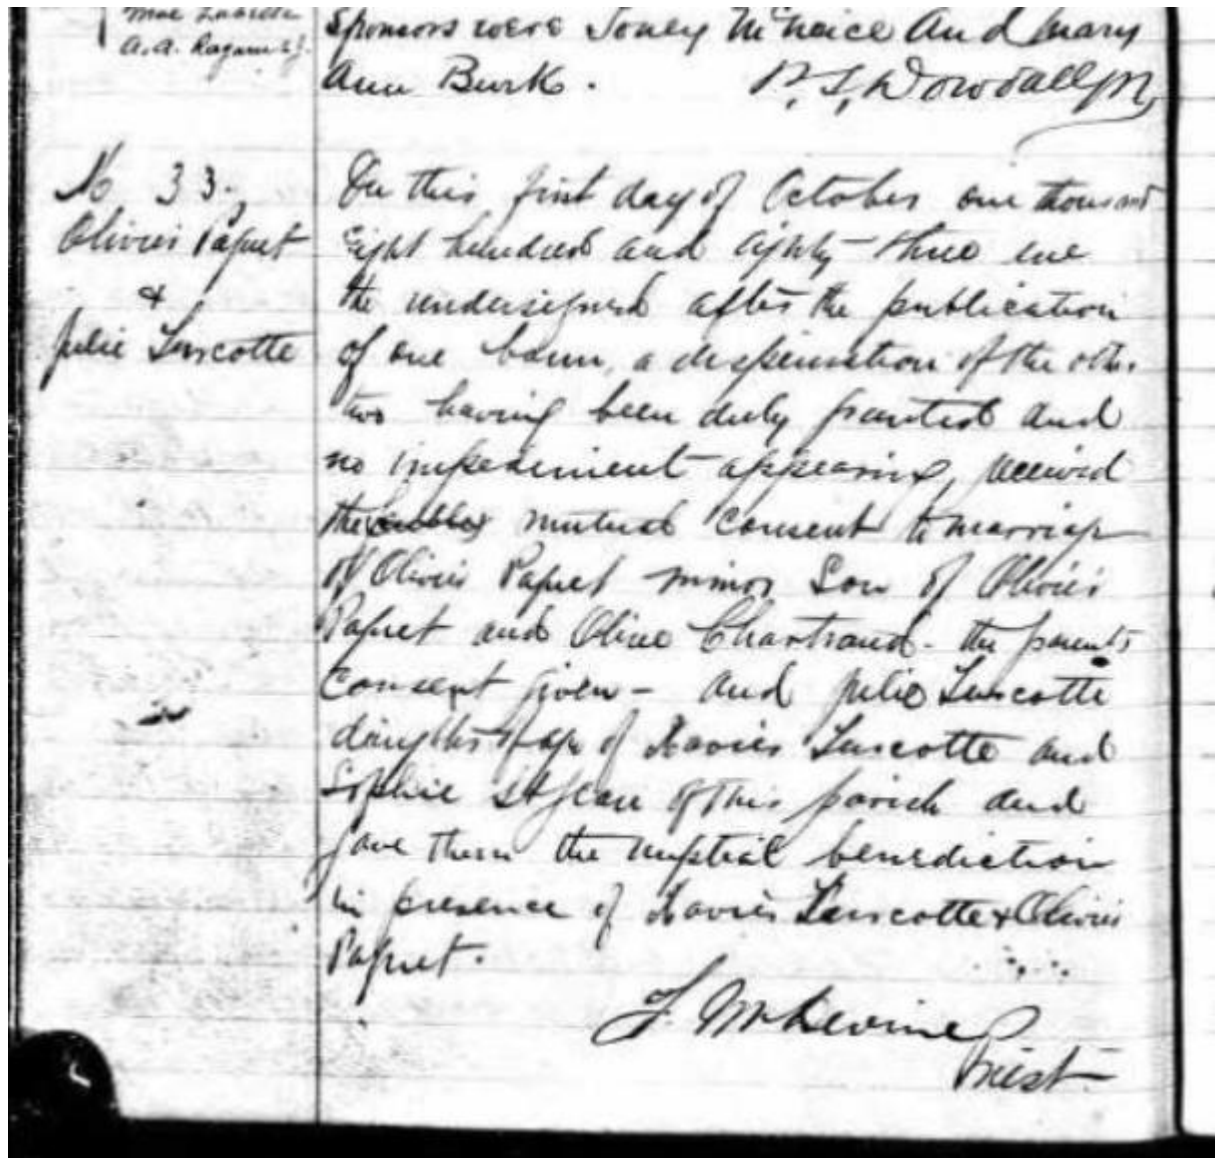 A. A.
Sponsors were Toney McNeice and Mary
Ann Burk.
P. S. Dowdall Ptr
No 33.
Olivier Paquet
&
Julie Turcotte
On this first day of October one thousand
eight hundred and eighty-three we
the undersigned after the publication
of one bann, a dispensation of the other
two having been duly granted and
no impediment appearing, received
the mutual consent to marriage
of Olivier Paquet minor son of Olivier
Paquet and Olive Chartrand - the parents
consent given - and Julie Turcotte
daughter of age of Xavier Turcotte and
Sophie St Jean of this parish and
gave them the nuptial benediction
in presence of Xavier Turcotte & Olivier
Paquet.
Priest